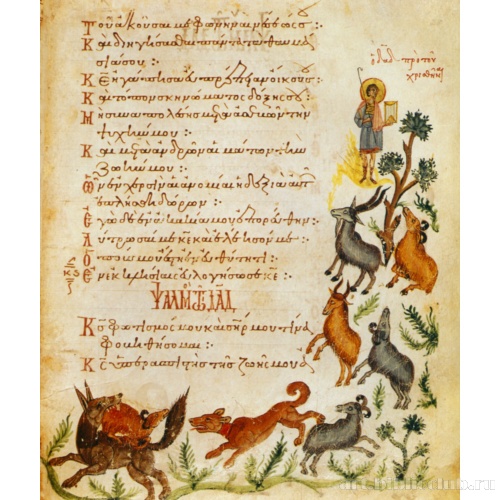 Τοῦ ἀκοῦσαί με φωνῆς αἰνέσεώς σου :·
Καὶ διηγήσασθαι πάντα τὰ θαυμά
σιά σου :·
Κε ἠγάπησα εὐπρέπειαν οἴκου σου :·
Καὶ τόπον σκηνώματος δόξης σου :·
Μὴ συναπολέσης μετὰ ἀσεβῶν τὴν
ψυχήν μου :·
Καὶ μετὰ ἀνδρῶν αἱμάτων τὴν
ζωήν μου :·
Ὧν ἐν χερσὶν αἱ ἀνομίαι ἡ δεξιὰ αὐτῶν
ἐπλήσθη δώρων :·
Ἐγὼ δὲ ἐν ἀκακία μου ἐπορεύθην :·
Λύτρωσαί με κε καὶ ἐλέησόν με :·
Ὁ πούς μου ἔστη ἐν εὐθύτητι :·
Ἐν ἐκκλησίαις εὐλογήσω σε κε :·
κϛ
ΨΑΛΜΟΣ Τῼ ΔΑΔ
Κς φωτισμός μου καὶ σωτήρ μου τίνα
φοβηθήσομαι :·
Κς ὑπερασπιστὴς τῆς ζωῆς μου ἀ
ὁ Δαδ πρὸ τοῦ
χρισθῆναι